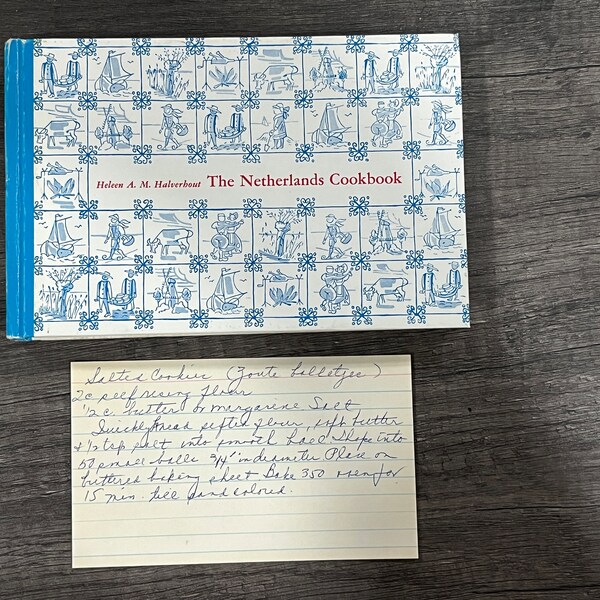 Heleen A. M. Halverhout The Netherlands Cookbook
Salted Cookies (Zoute balletjes)
2c selfrising flour
1/2 c. butter or margarine Salt
Quickly knead sifted flour, soft butter
+ 1/2 tsp salt into smooth ball Shape into
50 small balls 3/4" in diameter Place on
buttered baking sheet Bake 350 oven for
15 min. till sand colored.